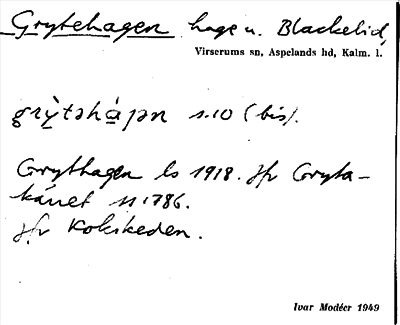 Grytehagen hage u. Blackelid,
Virserums sn, Aspelands hd, Kalm. l.
grỳtəhàgən s.10 (bis).
Grythagen ls 1918. Jfr Gryta-
kärret 1786.
Jfr Kokikeden.
Ivar Modéer 1949